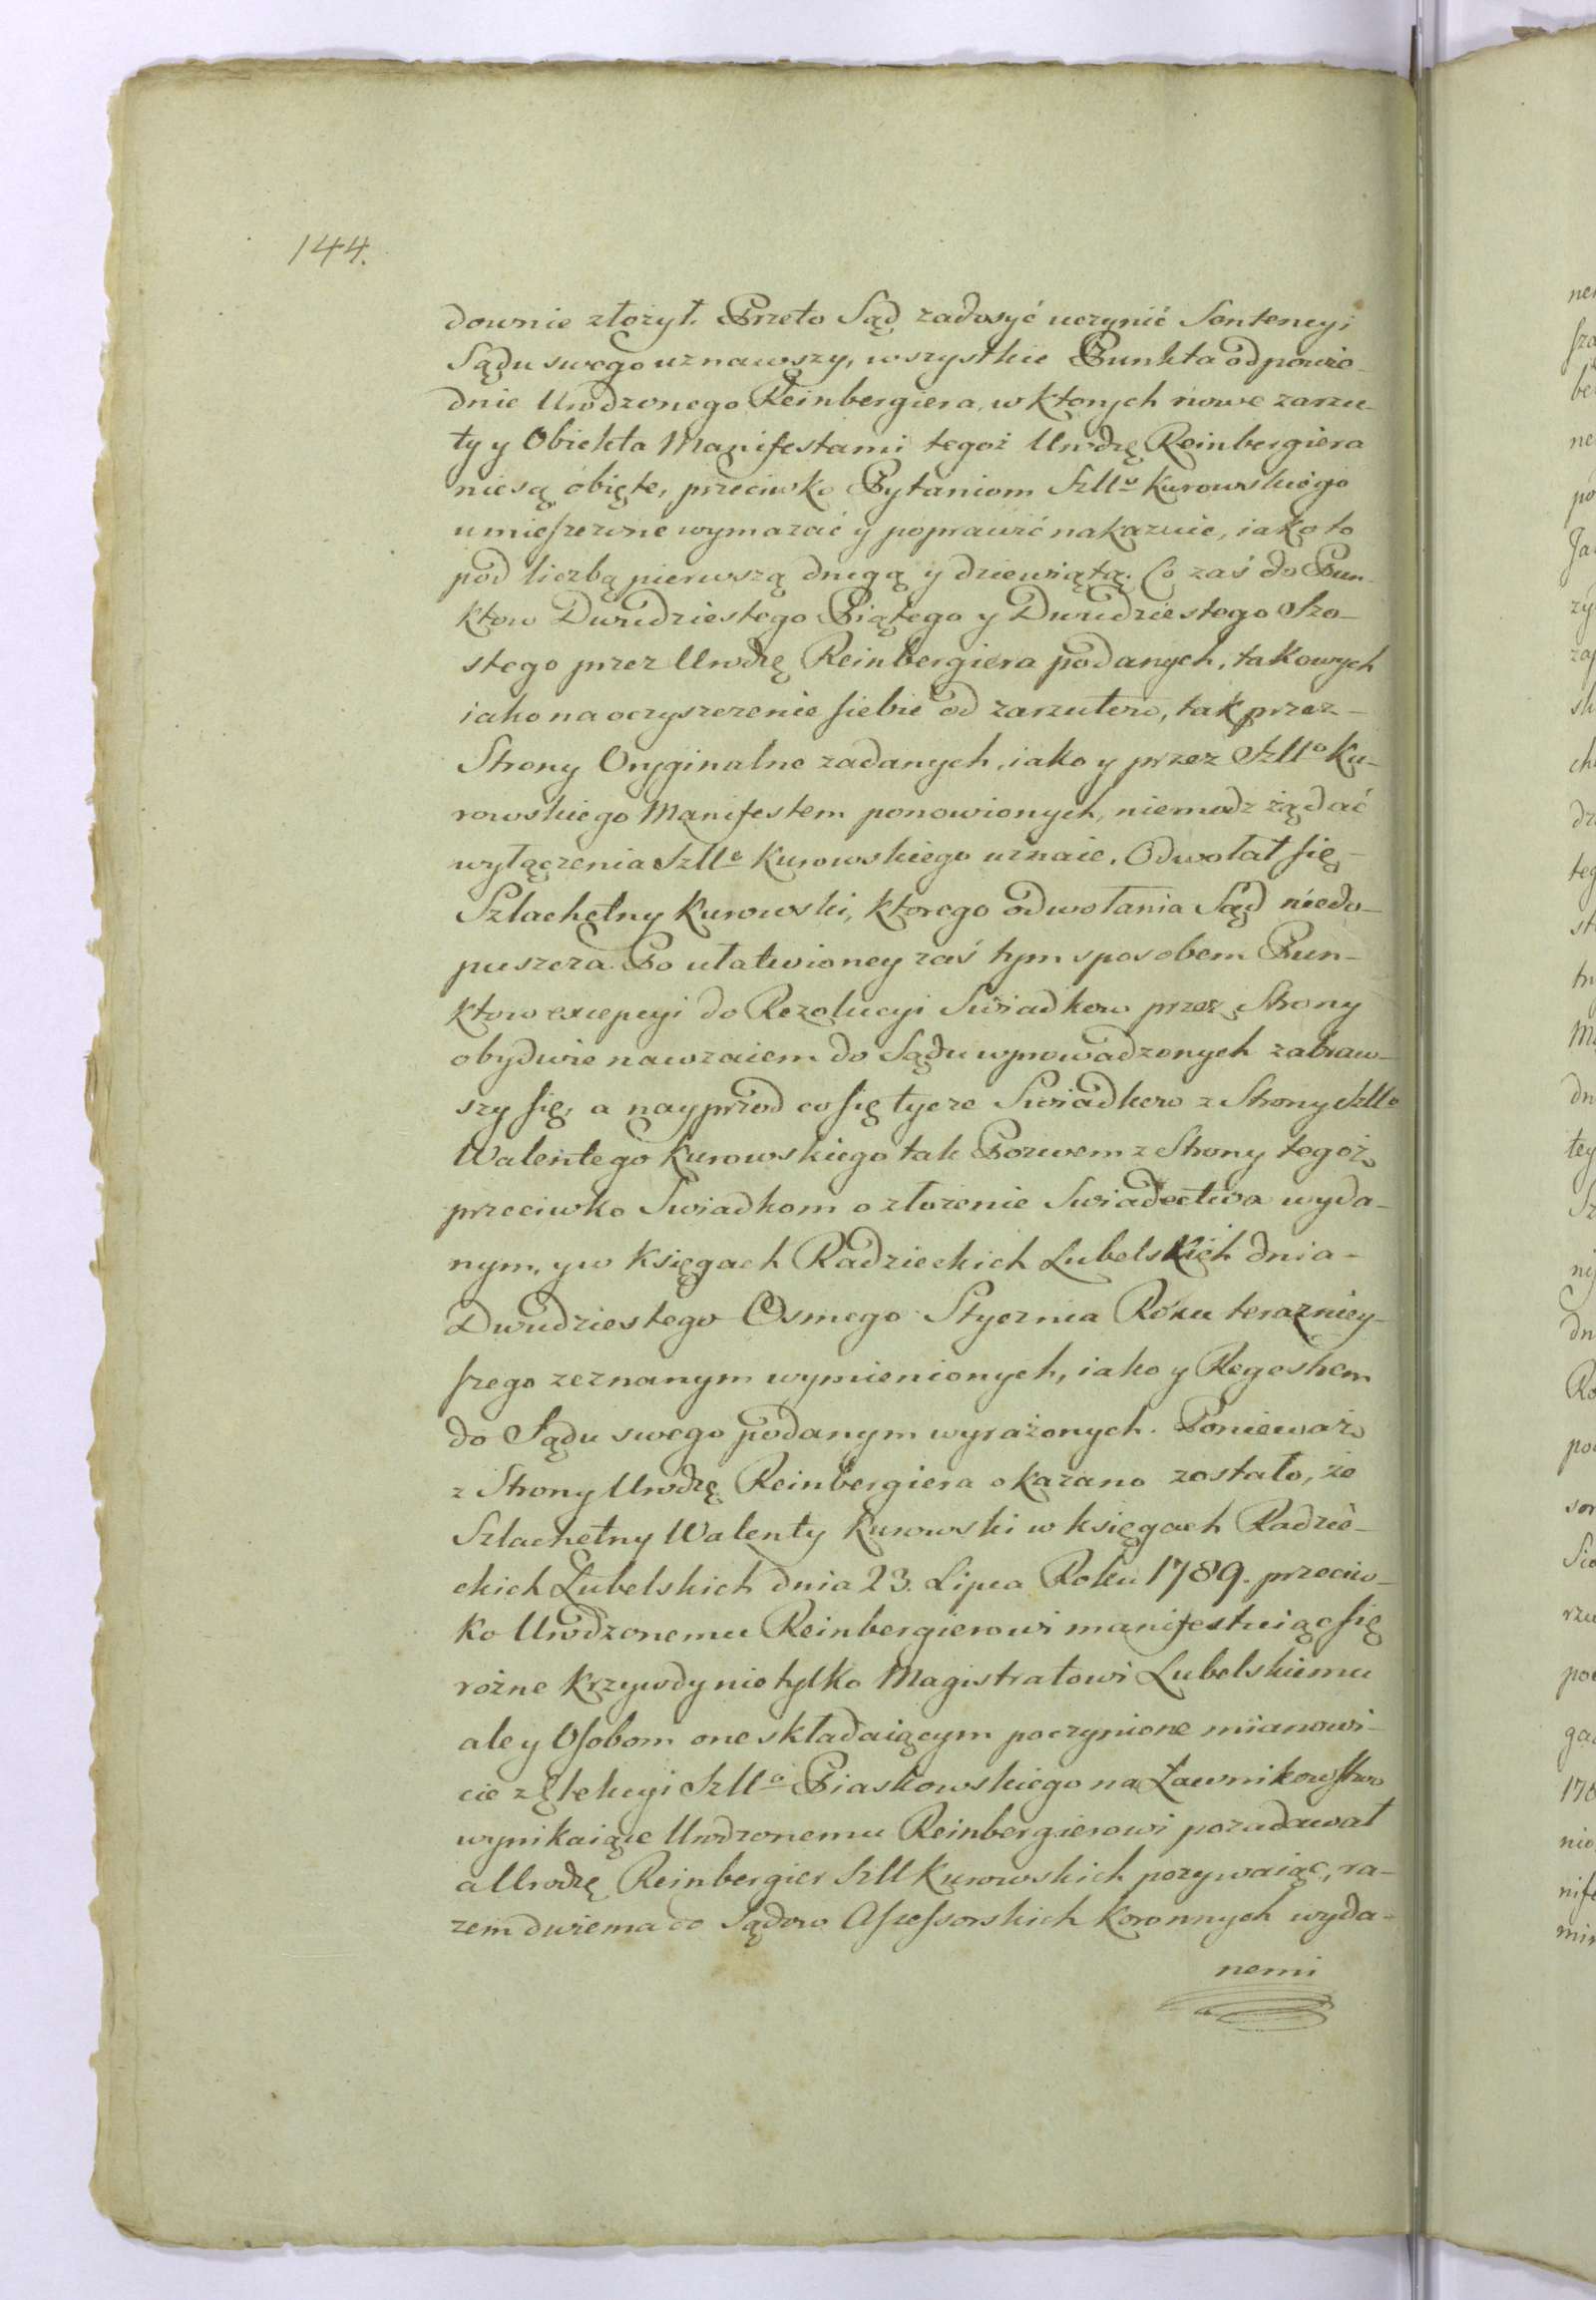 144.
downie złozył. Przeto Sąd zadosyć uczynić Sentencyi
Sądu swego uznawszy, wszystkie Punkta odpowie-
dnie Urodzonego Reinbergiera, w ktorych nowe zarzu-
ty y Obiekta Manifestami tegoż Urodzę Reinbergiera
niesą obięte, przeciwko Pytaniom Szllo Kurowskiego
umieszczone wymazać y poprawić nakazuie, iako to
pod liczbą pierwszą drugą y dziewiątą. Co zaś do Pun-
ktow Dwudziestego Piątego y Dwudziestego Szo-
stego przez Urodzę Reinbergiera podanych, takowych
iako na oczyszczenie siebie od zarzutow, tak przez-
Strony Oryginalne zadanych, iako y przez Szllo Ku-
rowskiego Manifestem ponowionych, niemodz żądać
wyłączenia Szllo Kurowskiego uznaie. Odwołał się-
Szlachetny Kurowski, ktorego odwołania Sąd niedo-
puszcza. Po ułatwioney zaś tym sposobem Pun-
ktow excepcyi do Rezolucyi Swiadkow przez Strony
obydwie nawzaiem do Sądu wprowadzonych zabraw-
szy się, a nayprzod co się tycze Swiadkow z Strony Szllo
Walentego Kurowskiego tak Pozwem z Strony tegoż
przeciwko Swiadkom o złozenie Swiadectwa wyda-
nym, y w Księgach Radzieckich Lubelskich dnia-
Dwudziestego Osmego Stycznia Roku terazniey-
szego zeznanym wymienionych, iako y Regestrem
do Sądu swego podanym wyrażonych. Ponieważ
z Strony Urodzę Reinbergiera okazano zostało, że
Szlachetny Walenty Kurowski w księgach Radzie-
ckich Lubelskich dnia 23. Lipca Roku 1789. przeciw-
ko Urodzonemu Reinbergierowi manifestuiąc się
rożne krzywdy nie tylko Magistratowi Lubelskiemu
ale y Osobom one składaiącym poczynione mianowi-
cie z Elekcyi Szllo Piaskowskiego na Ławnikowstwo
wynikaiące Urodzonemu Reinbergierowi pozadawał
a Urodzę Reinbergier Szll Kurowskich pozywaiąc, ra-
zem dwiema do Sądow Assessorskich Koronnych wyda-
nemi